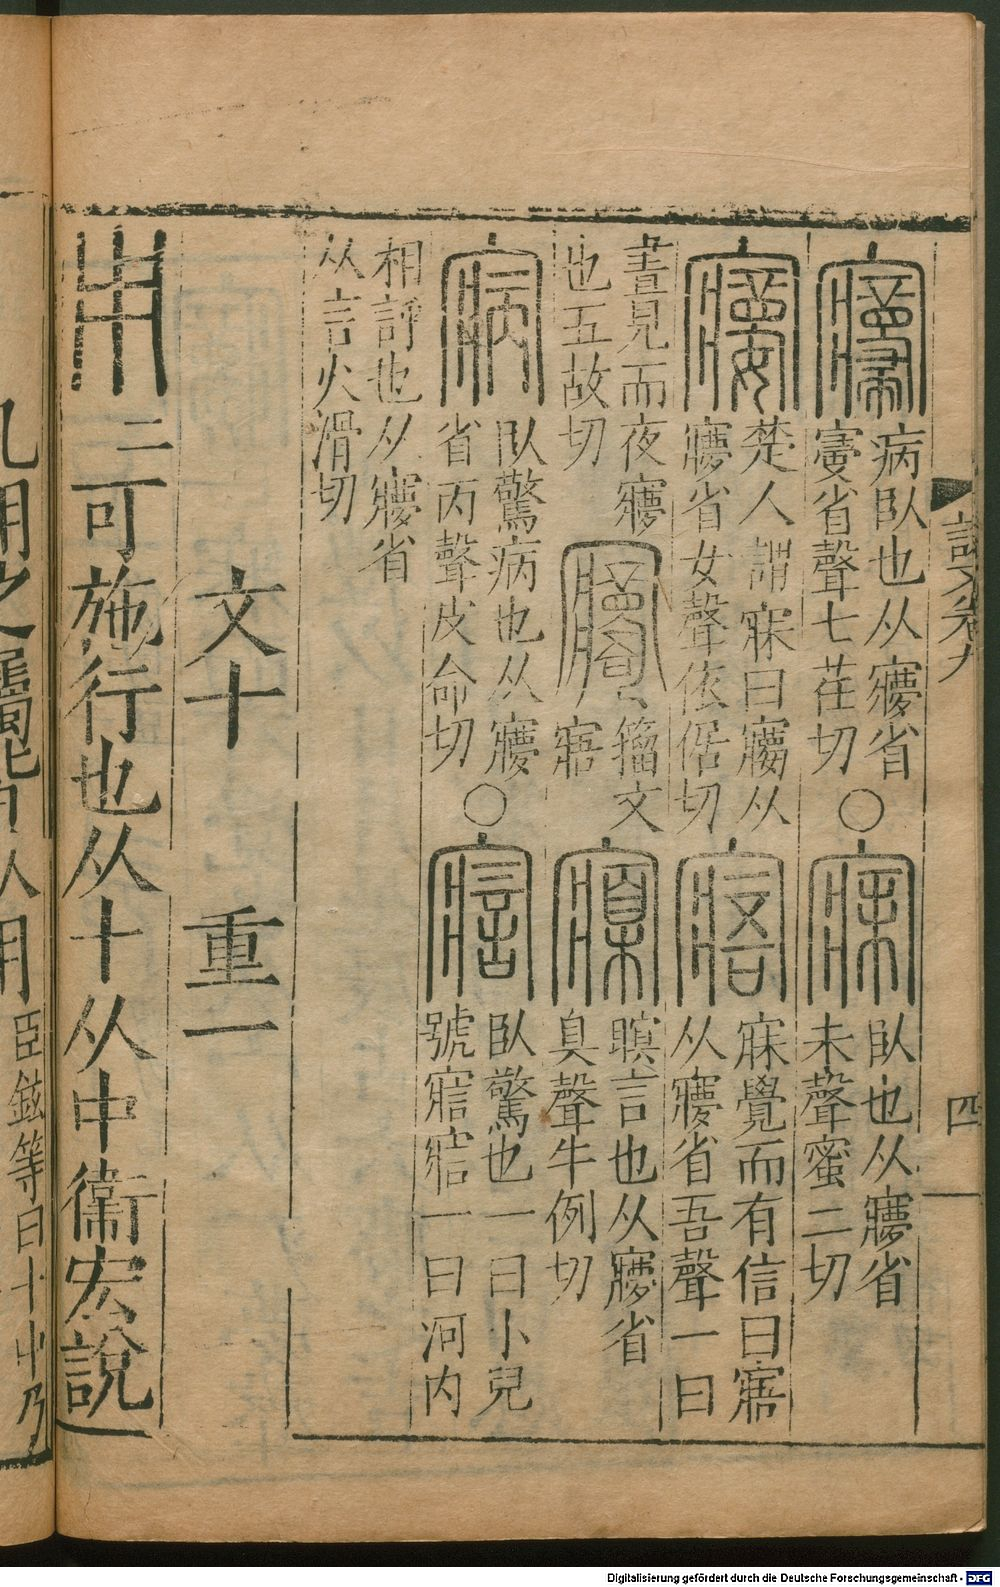 說文卷九
四
寢病臥也从㝱省
省聲七荏切
○寐臥也从㝱省
未聲蜜二切
楚人謂寐曰 从
㝱省女聲依倨切
寤寐覺而有信曰寤
从㝱省吾聲一曰
晝見而夜㝱
也五故切
籀文
寤
寱瞑言也从㝱省
臬聲牛例切
寎臥驚病也从㝱
省丙聲皮命切
○臥驚也一曰小兒
號 一曰河内
相評也从㝱省
从言火滑切
文十 重一
用 可施行也从十从中衞宏說
凡用之屬皆从用臣鉉等曰十中乃
Digitalisierung gefördert durch die Deutsche Forschungsgemeinschaft - DFG